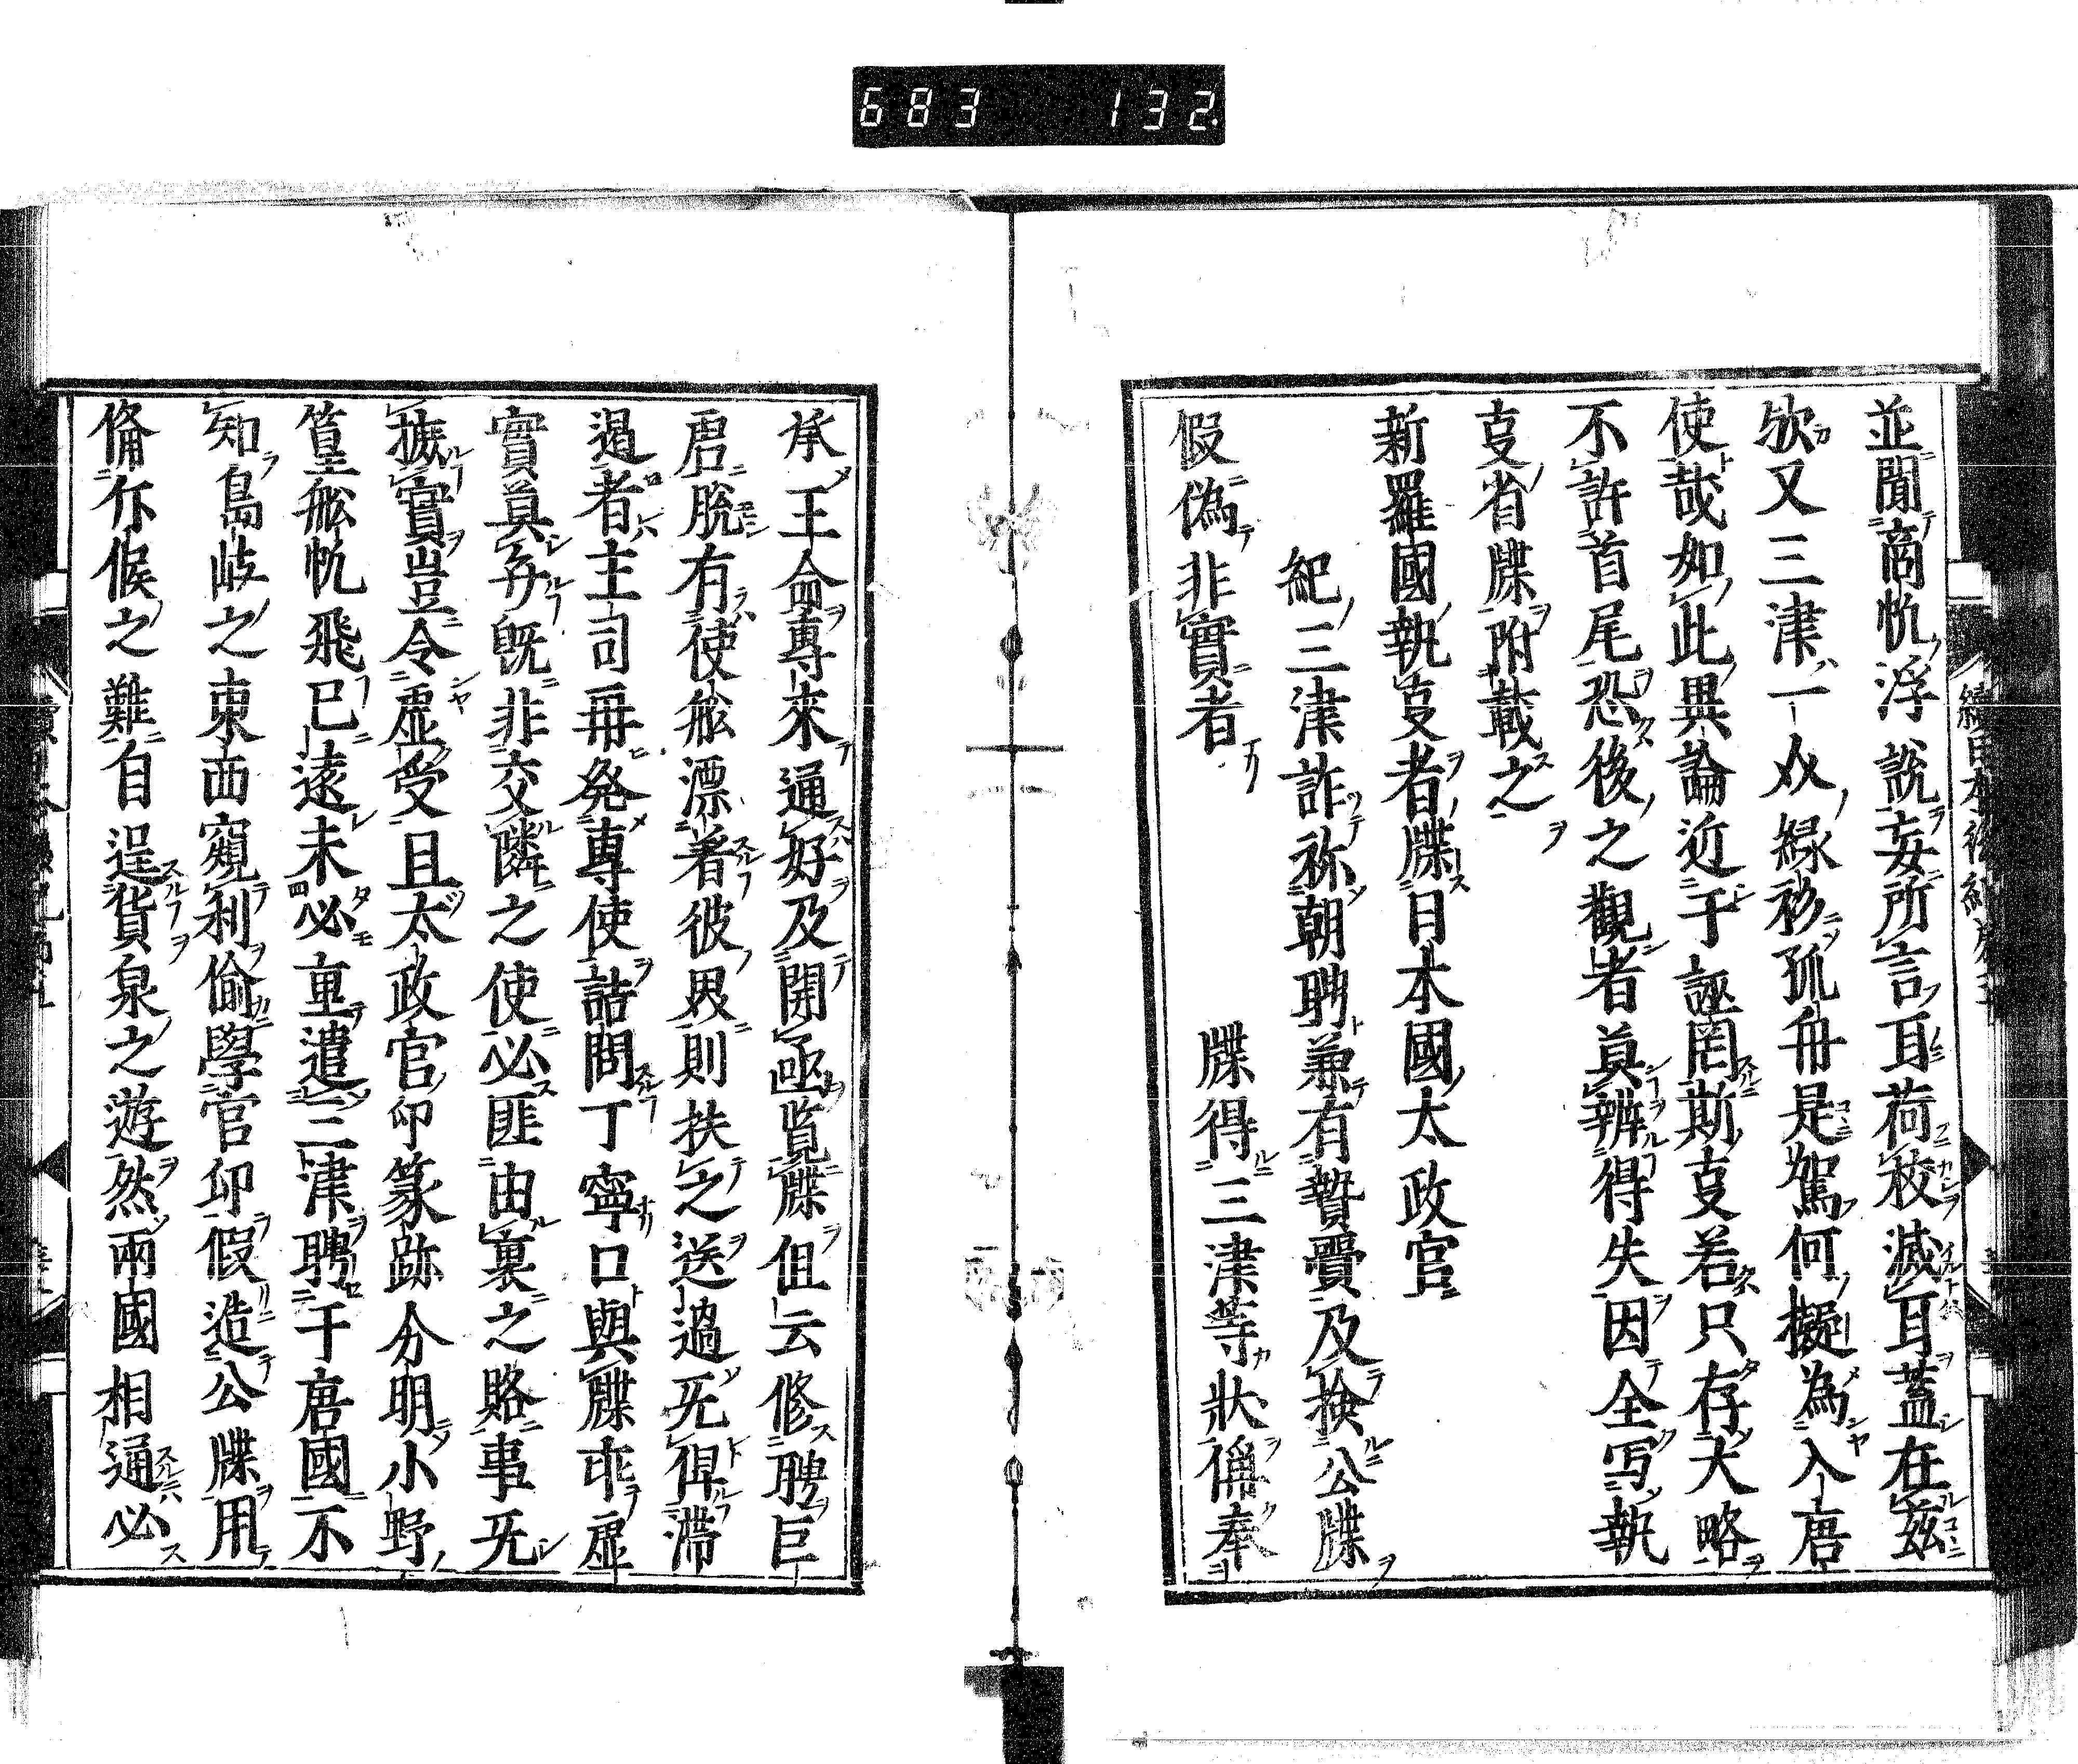 683 132
並聞商帆浮說妄所言耳荷校滅耳蓋在茲
欤又三津一介綠衫孤舟是駕何擬為入唐
使哉如此異論近于誣罔斯叓若只存大略
不許首尾恐後之觀者莫辨得失因全写執
叓省牒附載之
新羅國執叓省牒日本國太政官
紀三津詐称朝聘兼有贄賮及撿公牒
假偽非實者
牒得三津等狀偁奉
承王命專來通好及開函覧牒但云修聘巨
唐脫有使舩漂著彼界則扶之送過无俾滯
遏者主司再発專使詰問丁寧口與牒乖虛
實莫弁既非交隣之使必匪由裏之賂事无
摭實豈令虛受且太政官印篆跡分明小野
篁舩帆飛已遠未必重遣三津聘于唐國不
知島嶼之東西窺利偷學官印假造公牒用
俻斥候之難自逞貨泉之遊然兩國相通必